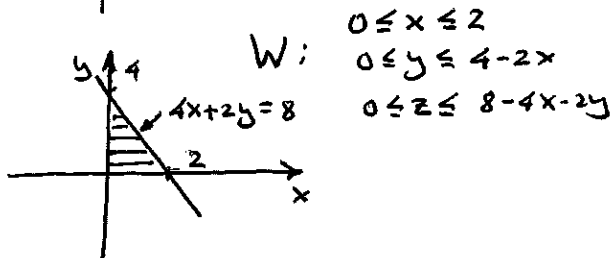 0 ≤ x ≤ 2
W: 0 ≤ y ≤ 4-2x
0 ≤ z ≤ 8-4x-2y
y 4
4x+2y=8
2
x